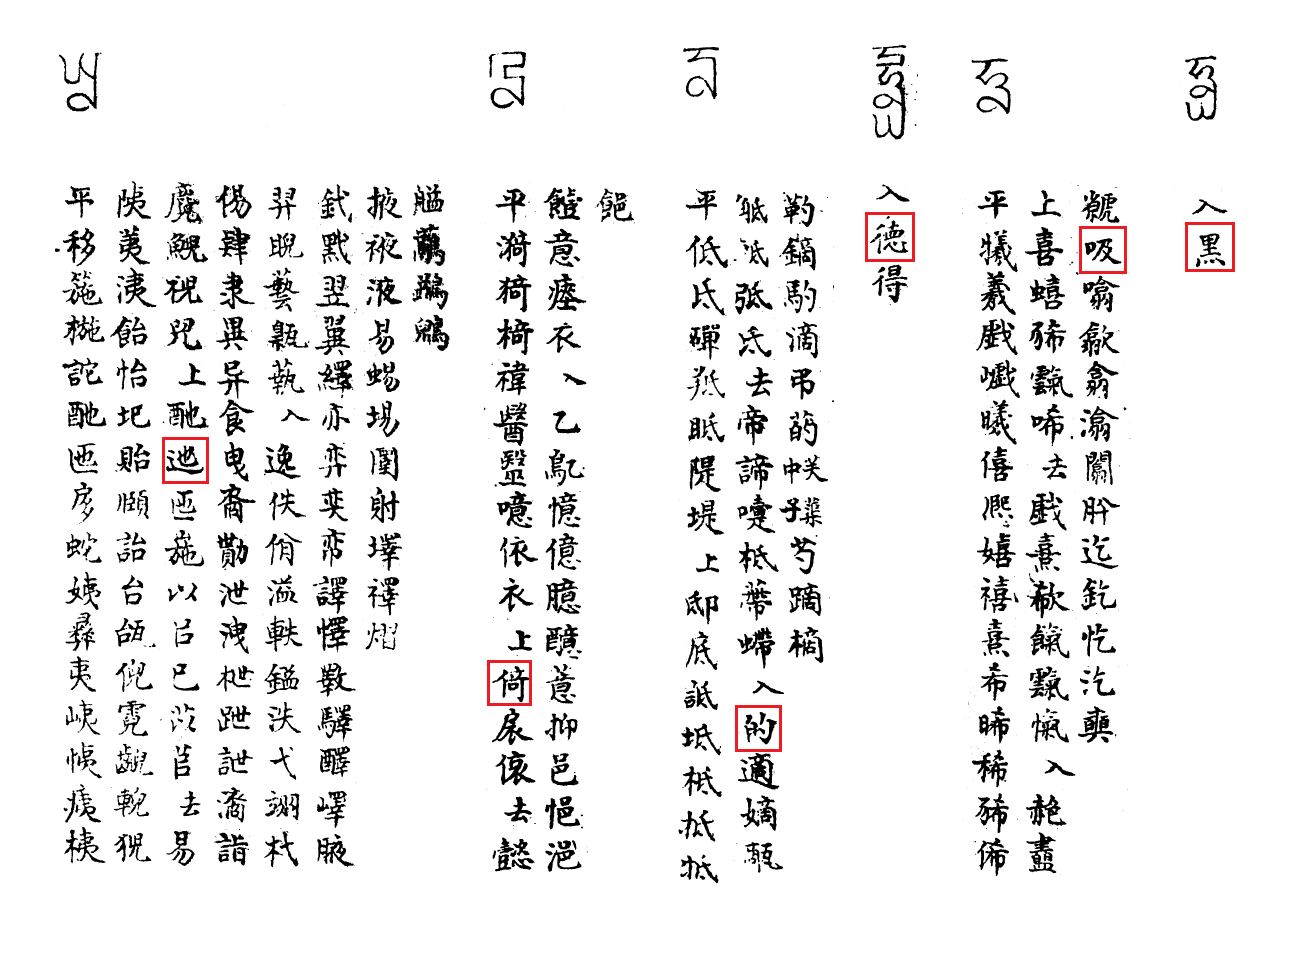 ꡗꡞ
平移箷椸詑酏匜㢮蛇姨彝夷峓恞痍桋
陝荑洟飴怡圯貽頤詒台瓵倪霓齯輗猊
麑鯢兒上酏迆匜施以㠯已苡苢去易
㑥肆隶異异食曳裔勩泄洩枻跇詍㵝詣
羿睨藝蓺入逸佚佾溢軼鎰泆弋翊杙
釴黓翌翼繹亦弈奕帟譯懌斁驛醳嶧腋
掖液易蜴埸圛射墿襗熠
艗虉鷁鶂
ꡖꡞ
平漪猗椅禕醫毉噫依衣上倚扆偯去懿
饐意瘞衣入乙鳦憶億臆醷薏抑邑悒浥
ꡊꡞ
平低氐磾羝眡隄堤上邸底詆坻柢抵牴
觝阺弤氐去帝諦嚏柢蔕螮入的適嫡甋
靮鏑馰滴弔菂中关子蕖芍蹢樀
ꡊꡜꡞꡗ
入德得
ꡜꡞ
平犧羲戲巇曦僖熙嬉禧熹希晞稀豨俙
上喜蟢豨霼唏去戲熹欷餼霼愾入赩衋
虩吸噏歙翕潝闟肸迄釳忔汔奭
ꡜꡞꡗ
入黑